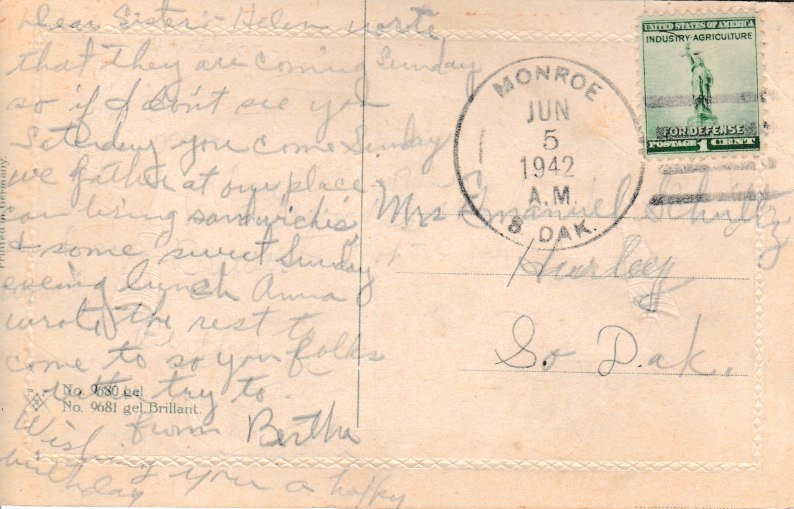 Dear Sister:- Helen worte
that they are coming Sunday
so if I don't see you
Saterday you come Sunday
we gather at our place
can bring sandwichis
& some sweet Sunday
evening lunch Anna
wrote the rest to
come to so your folks
try to.
from Bertha
Wishing you a happy
birthday
Printed in Germany
No. 9680 gel
No. 9681 gel. Brillant.
MONROE
JUN
5
1942
A.M.
S DAK.
UNITED STATES OF AMERICA
INDUSTRY-AGRICULTURE
FOR DEFENSE
POSTAGE 1 CENT
Mrs Emanuel Schultz
Hurley
So Dak.